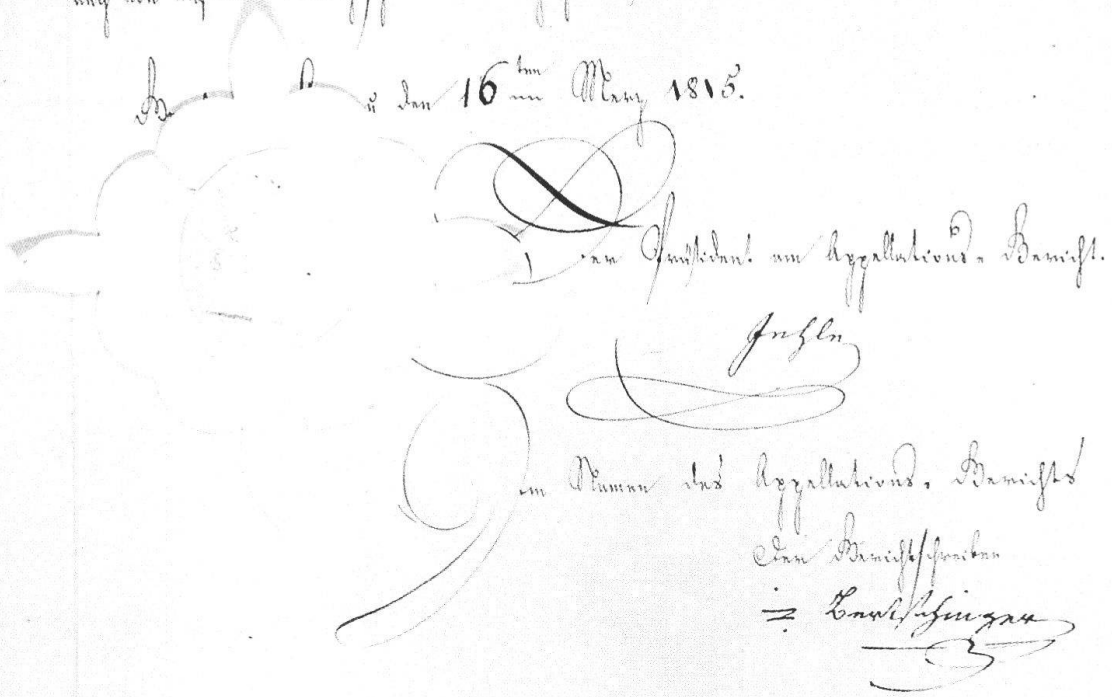 den 16ten Merz 1815.
er Präsident am Appellations-Gericht.
Jehle
im Namen des Appellations-Gerichts
Der Gerichtschreiber
Bertschinger